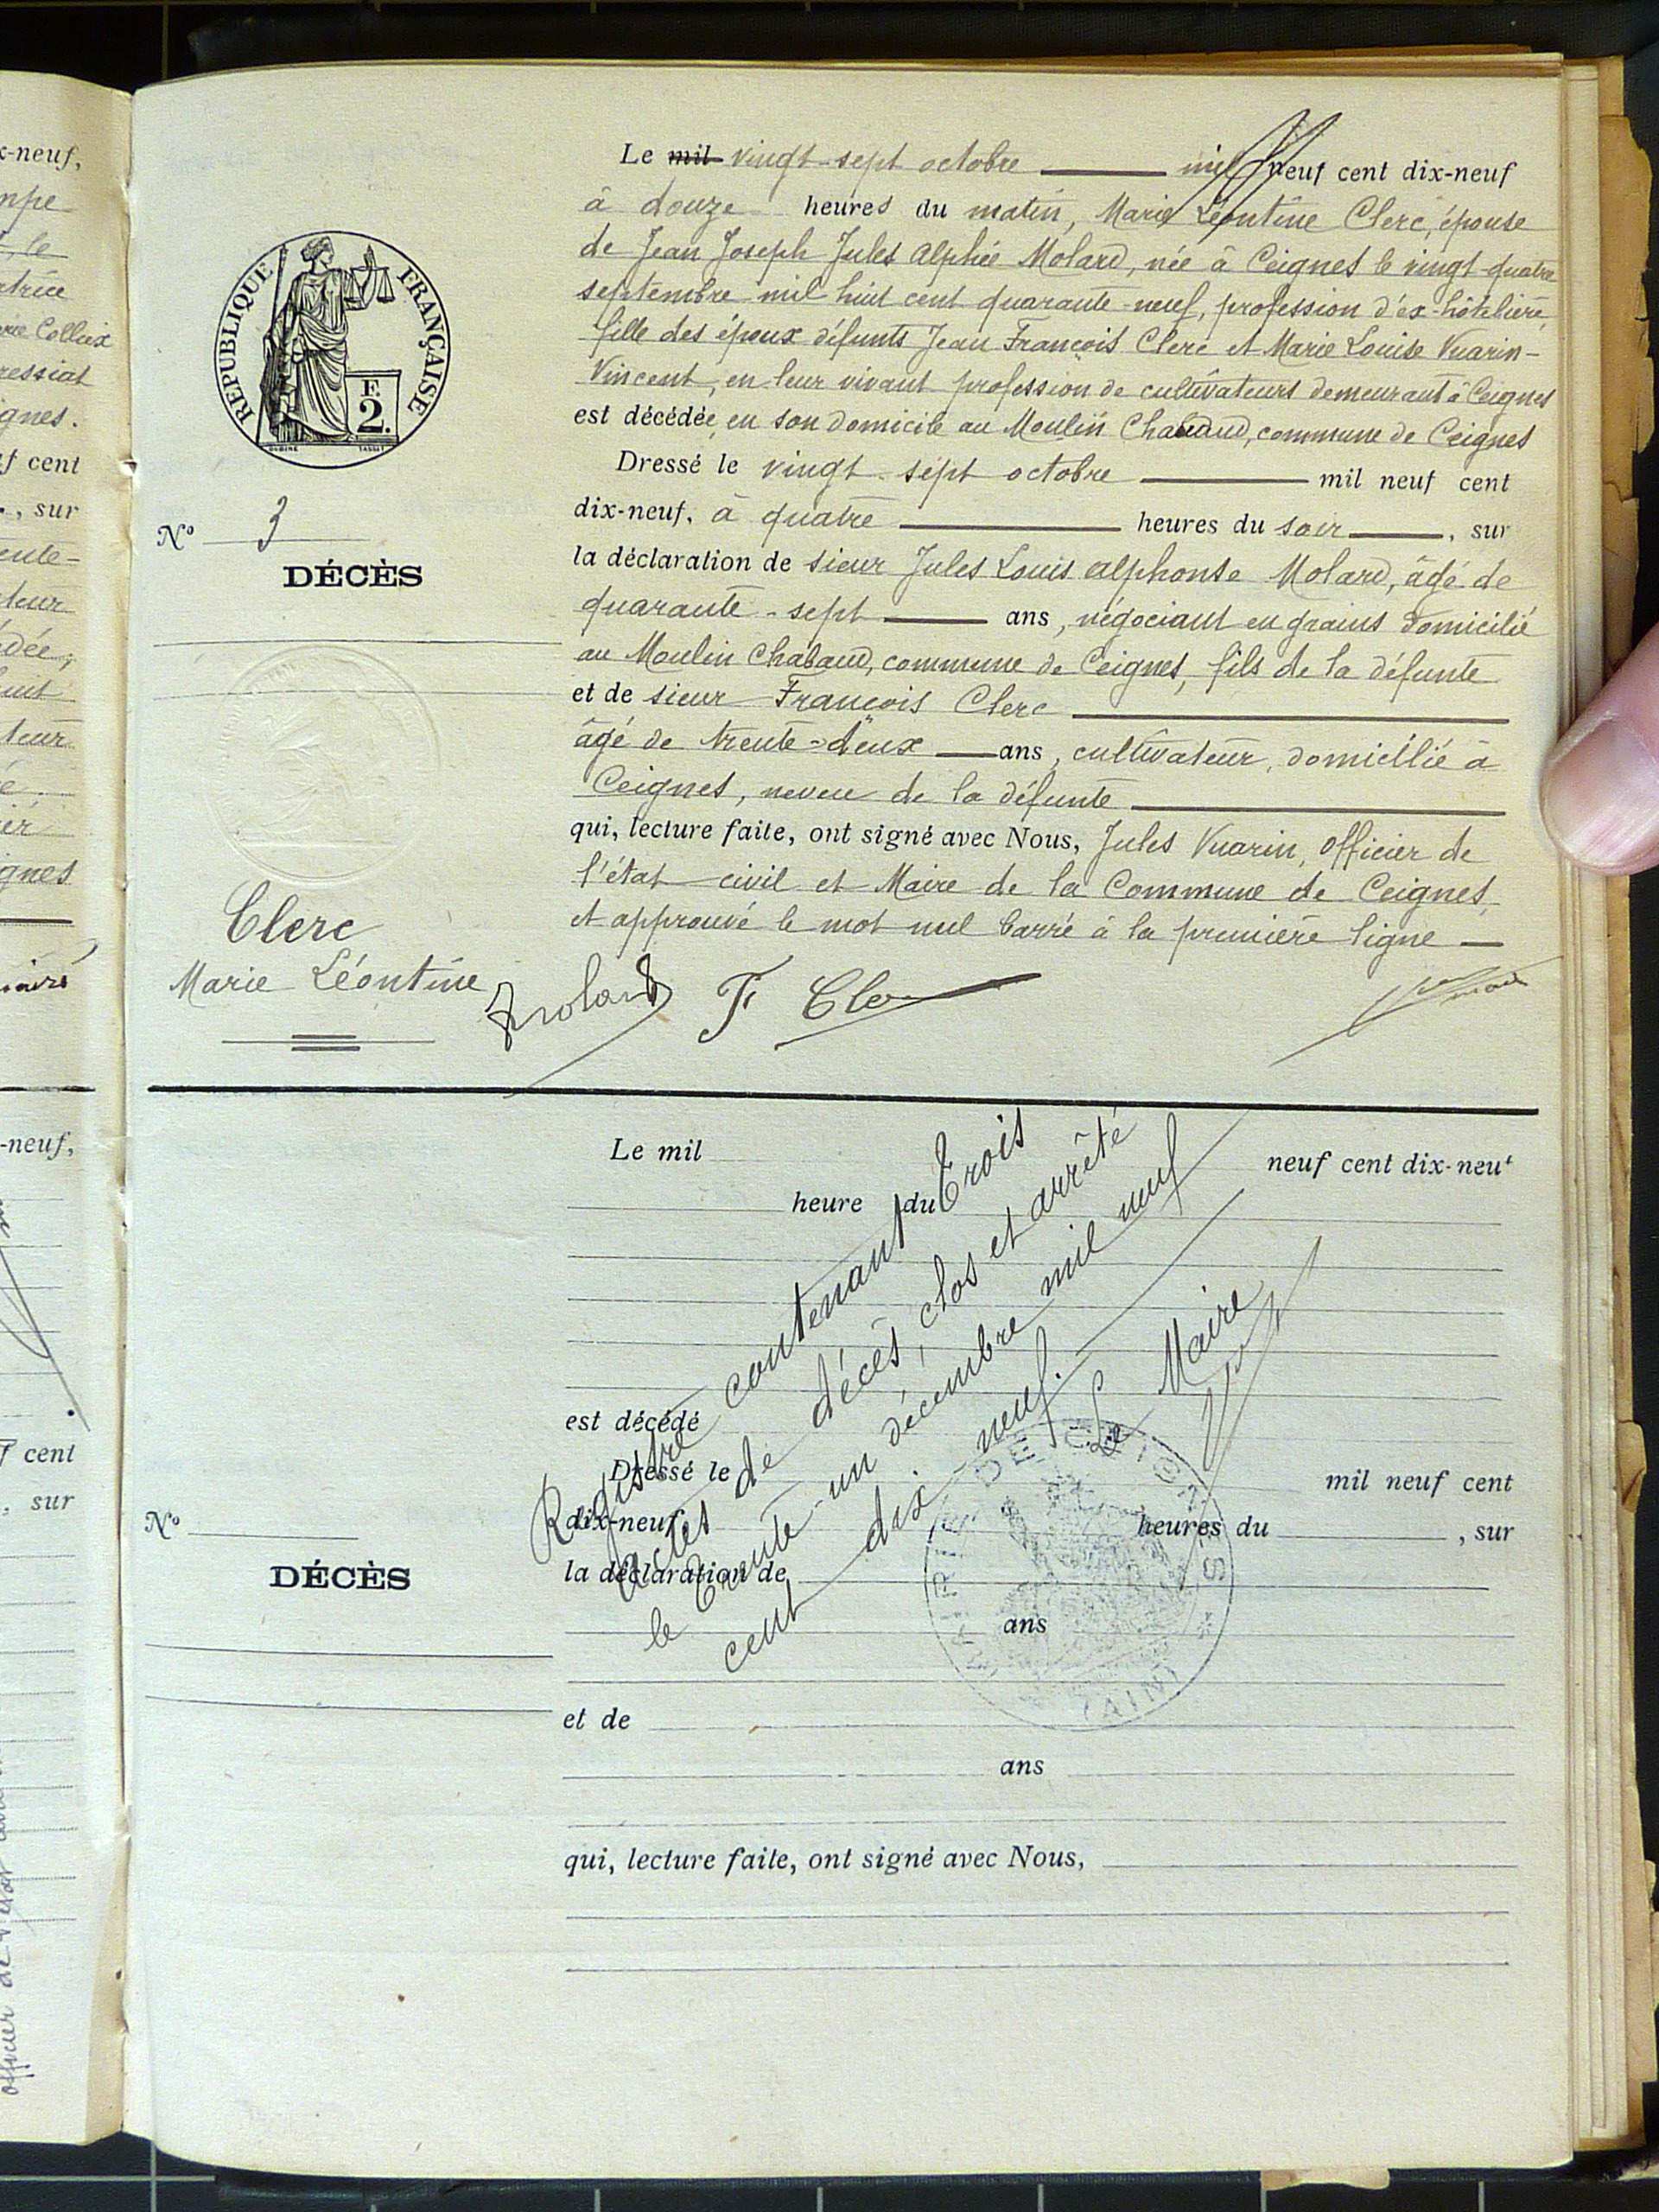 x-neuf,
le
atrice
Colliex
ressiat
ignes.
f cent
, sur
teur
dée,
teur
ignes
-neuf,
cent
, sur
RÉPUBLIQUE FRANÇAISE
F.
2.
N° 3
DÉCÈS
Clerc
Marie Léontine
Le mil vingt-sept octobre mil neuf cent dix-neuf
à douze heures du matin, Marie Léontine Clerc, épouse
de Jean Joseph Jules Alphée Molard, née à Ceignes le vingt-quatre
septembre mil huit cent quarante-neuf, profession d'ex-hôtelière,
fille des époux défunts Jean François Clerc et Marie Louise Vuarin-
Vincent, en leur vivant profession de cultivateurs demeurant à Ceignes
est décédée, en son domicile au Moulin Chabaud, commune de Ceignes
Dressé le vingt-sept octobre mil neuf cent
dix-neuf, à quatre heures du soir, sur
la déclaration de sieur Jules Louis Alphonse Molard, âgé de
quarante-sept ans, négociant en grains domicilié
au Moulin Chabaud, commune de Ceignes, fils de la défunte
et de sieur François Clerc
âgé de trente-deux ans, cultivateur, domicilié à
Ceignes, neveu de la défunte
qui, lecture faite, ont signé avec Nous, Jules Vuarin, Officier de
l'état civil et Maire de la Commune de Ceignes,
et approuvé le mot nul barré à la première ligne
Molard F Clerc
N°
DÉCÈS
Le mil neuf cent dix-neuf
heure du
est décédé
Dressé le mil neuf cent
dix-neuf, heures du , sur
la déclaration de
ans
et de
ans
qui, lecture faite, ont signé avec Nous,
Registre contenant Trois
actes de décès, clos et arrêté
le Trente-un décembre mil neuf
cent dix-neuf.
Le Maire
MAIRIE DE CEIGNES
(AIN)